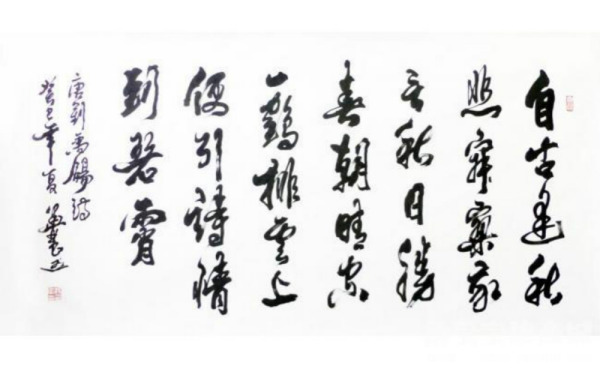 自古逢秋
悲寂寥我
言秋日勝
春朝晴空
一鶴排雲上
便引詩情
到碧霄
唐劉禹錫詩
癸巳年夏